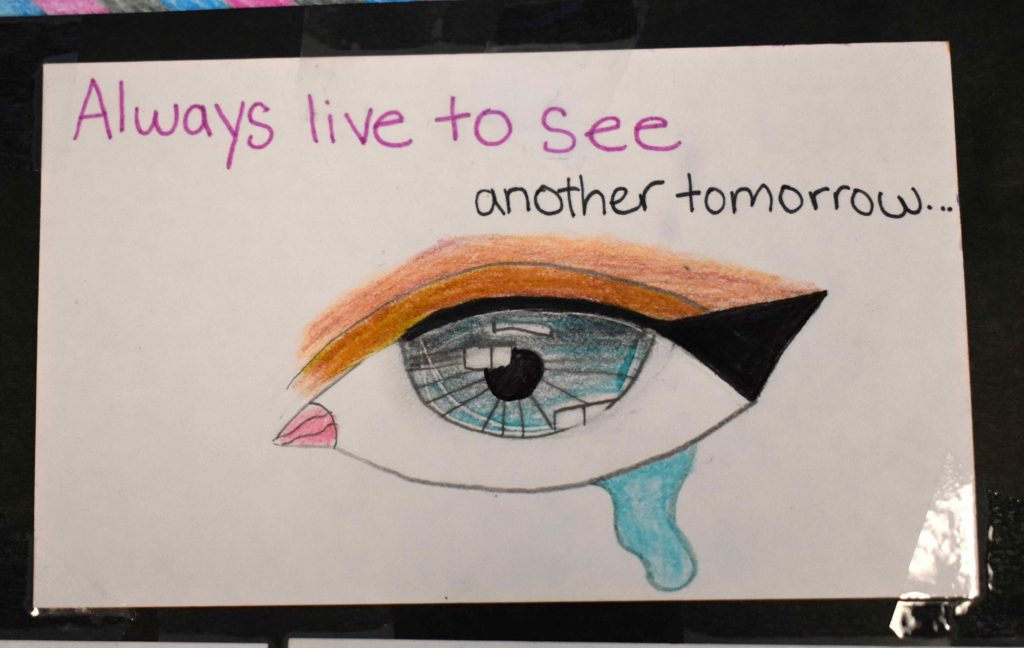 Always live to see
another tomorrow...